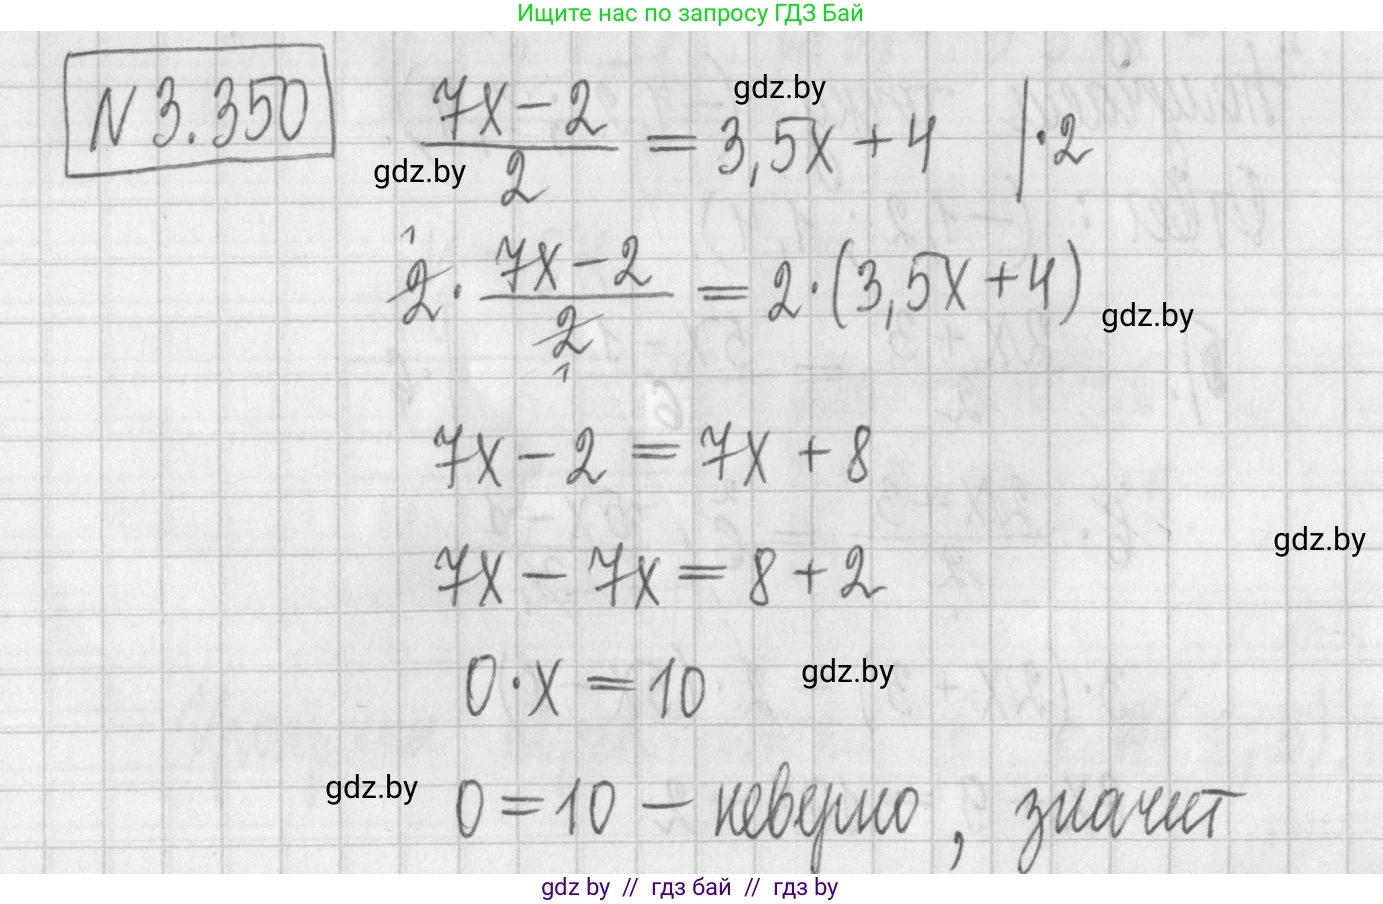 Ищите нас по запросу ГДЗ Бай
N 3.350
7x - 2 / 2 = 3,5x + 4 | · 2
gdz.by
gdz.by
1
2 · 7x - 2 / 2 = 2 · (3,5x + 4)
1
gdz.by
7x - 2 = 7x + 8
gdz.by
7x - 7x = 8 + 2
0 · x = 10
gdz.by
gdz.by
0 = 10 — неверно, значит
gdz by // гдз бай // гдз by